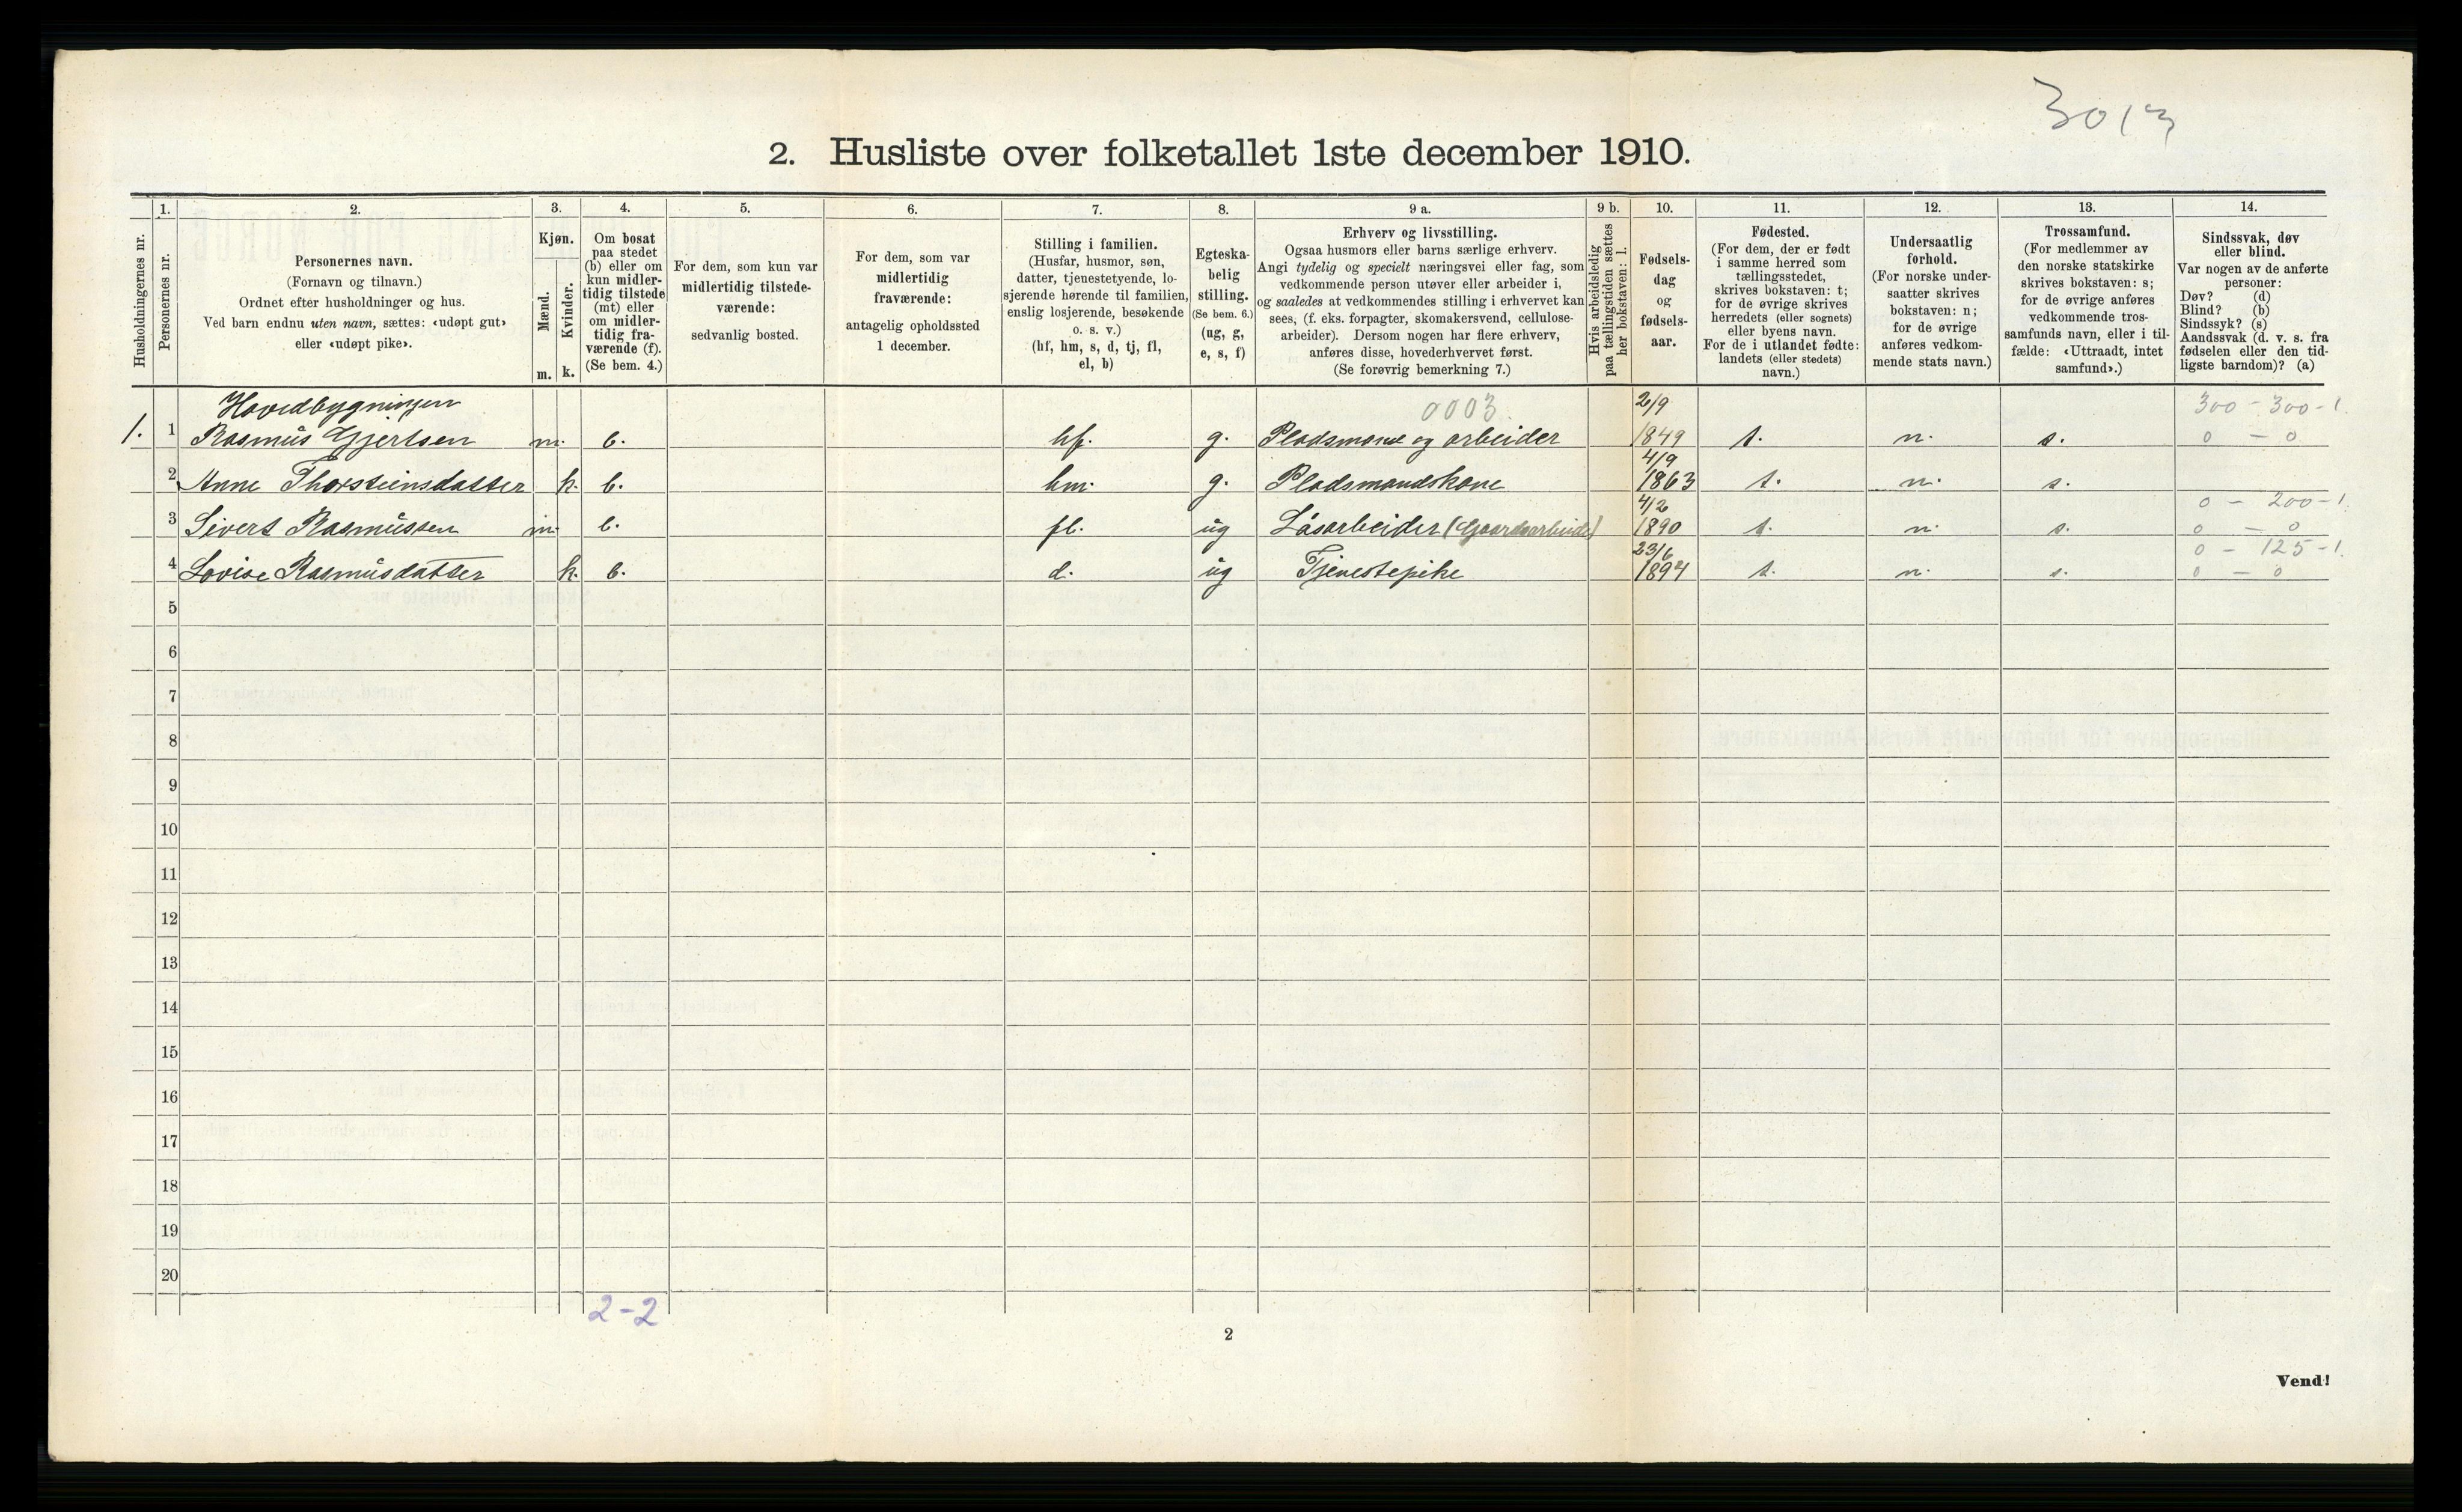 3013
2. Husliste over folketallet 1ste december 1910.
Husholdningernes nr.
1.
Personernes nr.
2.
Personernes navn.
(Fornavn og tilnavn.)
Ordnet efter husholdninger og hus.
Ved barn endnu uten navn, sættes: «udøpt gut»
eller «udøpt pike».
3.
Kjøn.
Mænd.
Kvinder.
m. k.
4.
Om bosat
paa stedet
(b) eller om
kun midler-
tidig tilstede
(mt) eller
om midler-
tidig fra-
værende (f).
(Se bem. 4.)
5.
For dem, som kun var
midlertidig tilstede-
værende:
sedvanlig bosted.
6.
For dem, som var
midlertidig
fraværende:
antagelig opholdssted
1 december.
7.
Stilling i familien.
(Husfar, husmor, søn,
datter, tjenestetyende, lo-
sjerende hørende til familien,
enslig losjerende, besøkende
o. s. v.)
(hf, hm, s, d, tj, fl,
el, b)
8.
Egteska-
belig
stilling.
(Se bem. 6.)
(ug, g,
e, s, f)
9 a.
Erhverv og livsstilling.
Ogsaa husmors eller barns særlige erhverv.
Angi tydelig og specielt næringsvei eller fag, som
vedkommende person utøver eller arbeider i,
og saaledes at vedkommendes stilling i erhvervet kan
sees, (f. eks. forpagter, skomakersvend, cellulose-
arbeider). Dersom nogen har flere erhverv,
anføres disse, hovederhvervet først.
(Se forøvrig bemerkning 7.)
9 b.
Hvis arbeidsledig
paa tællingstiden sættes
her bokstaven: l.
10.
Fødsels-
dag
og
fødsels-
aar.
11.
Fødested.
(For dem, der er født
i samme herred som
tællingsstedet,
skrives bokstaven: t;
for de øvrige skrives
herredets (eller sognets)
eller byens navn.
For de i utlandet fødte:
landets (eller stedets)
navn.)
12.
Undersaatlig
forhold.
(For norske under-
saatter skrives
bokstaven: n;
for de øvrige
anføres vedkom-
mende stats navn.)
13.
Trossamfund.
(For medlemmer av
den norske statskirke
skrives bokstaven: s;
for de øvrige anføres
vedkommende tros-
samfunds navn, eller i til-
fælde: «Uttraadt, intet
samfund».)
14.
Sindssvak, døv
eller blind.
Var nogen av de anførte
personer:
Døv? (d)
Blind? (b)
Sindssyk? (s)
Aandssvak (d. v. s. fra
fødselen eller den tid-
ligste barndom)? (a)
Hovedbygningen 0003 2/9 300 - 300 - 1.
1. 1 Rasmus Gjertsen m. b. hf. g. Pladsmand og arbeider 1849 t. n. s. 0 - 0
4/9
2 Anne Thorsteinsdatter k. b. hm. g. Pladsmandskone 1863 t. n. s.
4/2 0 - 200 - 1.
3 Sivert Rasmussen m. b. fl. ug Løsarbeider (Gaardsarbeide) 1890 t. n. s. 0 - 0
23/6 0 - 125 - 1.
4 Lovise Rasmusdatter k. b. d. ug Tjenestepike 1894 t. n. s. 0 - 0
5
6
7
8
9
10
11
12
13
14
15
16
17
18
19
20
2-2
2
Vend!